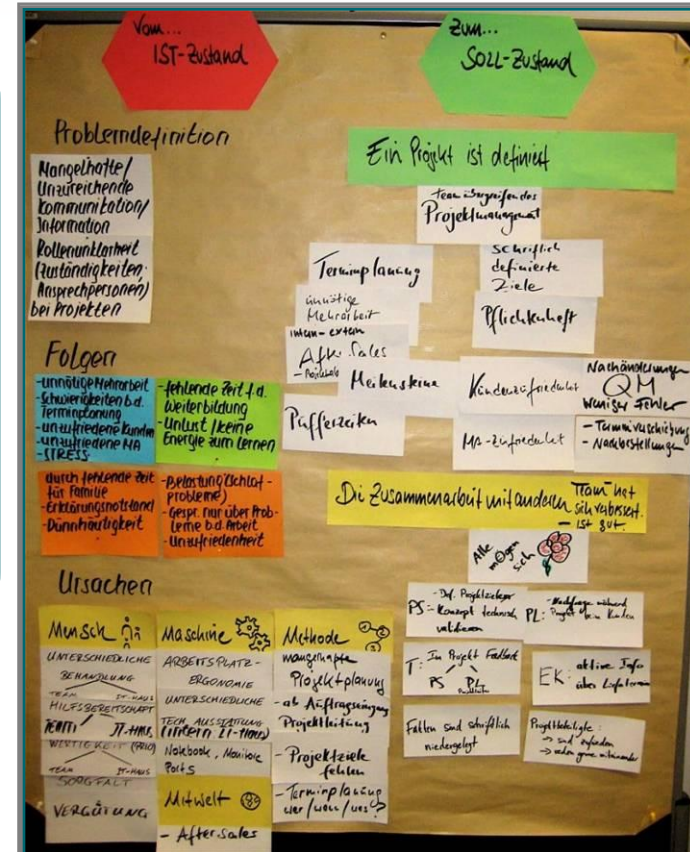 Vom...
IST-Zustand
Zum...
SOLL-Zustand
Problemdefinition
Mangelhafte/
Unzureichende
Kommunikation/
Information
Rollenunklarheit
(Zuständigkeiten.
Ansprechpersonen)
bei Projekten
Folgen
-unnötige Mehrarbeit
-Schwierigkeiten b.d.
Terminplanung
-unzufriedene Kunden
-unzufriedene MA
-STRESS
-fehlende Zeit f.d.
Weiterbildung
-Unlust/keine
Energie zum Lernen
durch fehlende Zeit
für Familie
-Erklärungsnotstand
-Dünnhäutigkeit
-Belastung (Schlaf-
probleme)
-Gespr. nur über Prob-
leme b.d. Arbeit
-Unzufriedenheit
Ursachen
Mensch
UNTERSCHIEDLICHE
BEHANDLUNG
TEAM IT-HAUS
HILFSBEREITSCHAFT
TEAM IT-HAUS
WERTIGKEIT (PRIO)
TEAM IT-HAUS
SORGFALT
VERGÜTUNG
Maschine
ARBEITSPLATZ-
ERGONOMIE
UNTERSCHIEDLICHE
TECH. AUSSTATTUNG
(intern IT-Haus)
Notebook, Monitore
Ports
Mitwelt
- After-Sales
Methode
mangelhafte
Projektplanung
- ab Auftragseingang
Projektleitung
- Projektziele
fehlen
- Terminplanung
wer/wann/was?
Ein Projekt ist definiert
Team übergreifendes
Projektmanagement
Terminplanung
unnötige
Mehrarbeit
intern - extern
After Sales
Meilensteine
Pufferzeiten
Schriftlich
definierte
Ziele
Pflichtenheft
Kundenzufriedenheit
MA-Zufriedenheit
Nachänderungen
QM
weniger Fehler
- Terminverschiebung
- Nachbestellungen
Die Zusammenarbeit mit anderen Team hat
sich verbessert.
- ist gut.
Alle
mögen
sich
PS:
Konzept technisch
validieren
PL:
- Nachfrage während
Projekt beim Kunden
T: Im Projekt Feedback
PS PL
EK: aktive Info
über Liefertermin
Fakten sind schriftlich
niedergelegt
Projektbeteiligte:
→ sind zufrieden
→ reden gerne miteinander